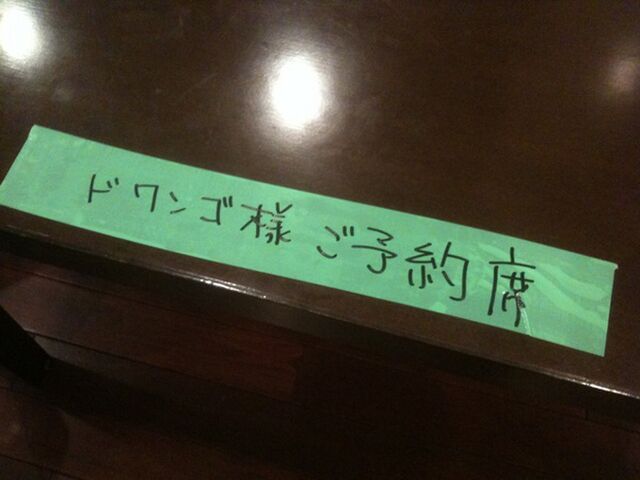 ドワンゴ様 ご予約席